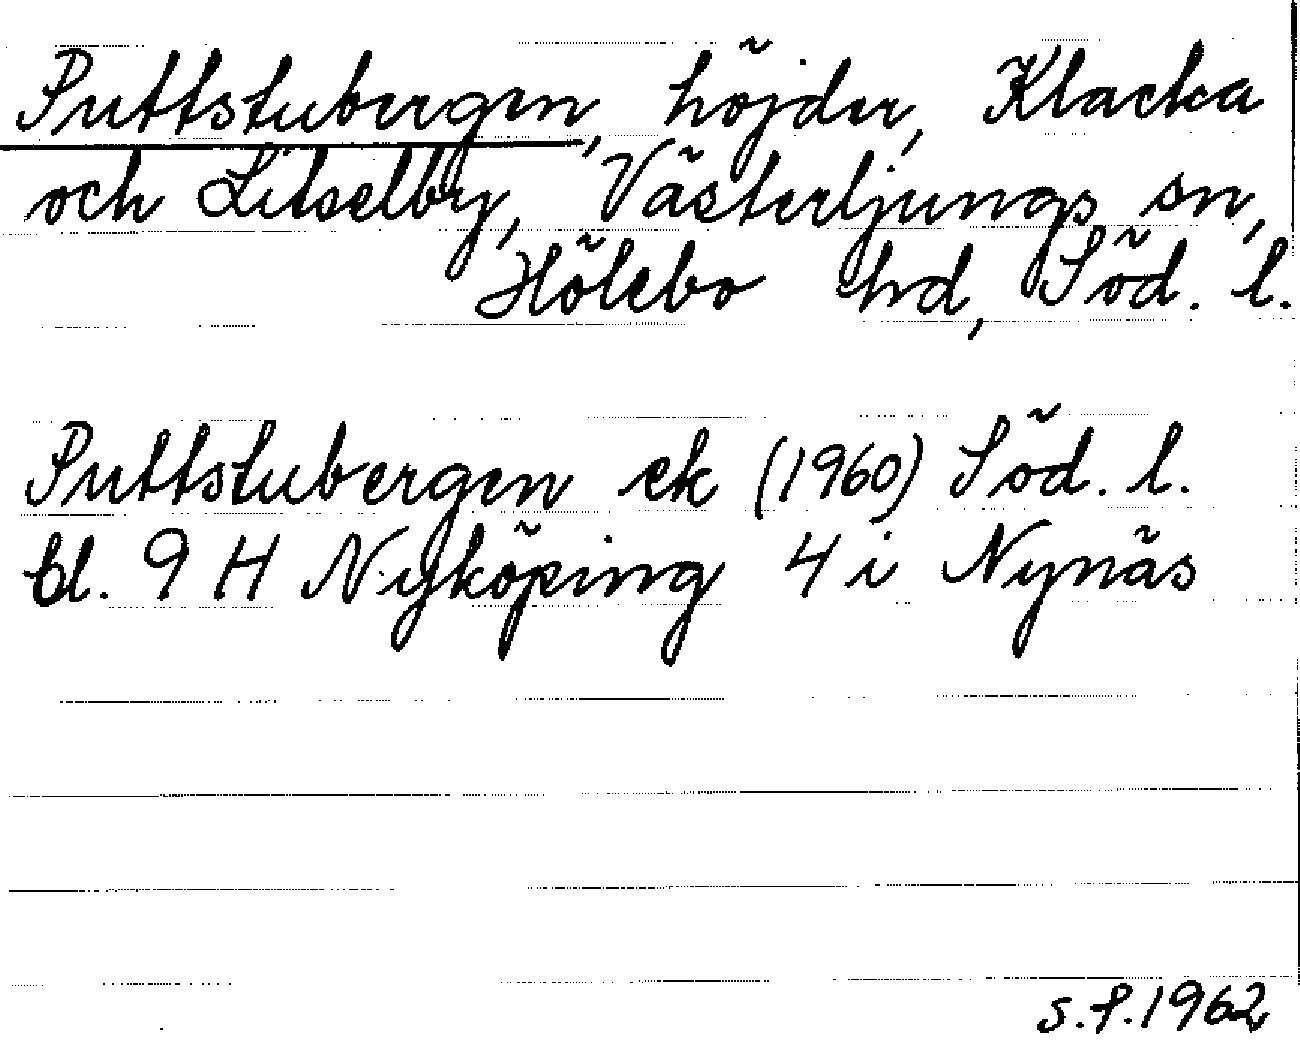 Puttstubergen, höjder, Klacka
och Litselby, Västerljungs sn,
Hölebo hd, Söd. l.
Puttstubergen ek (1960) Söd. l.
bl. 9 H Nyköping 4 i Nynäs
S.P.1962